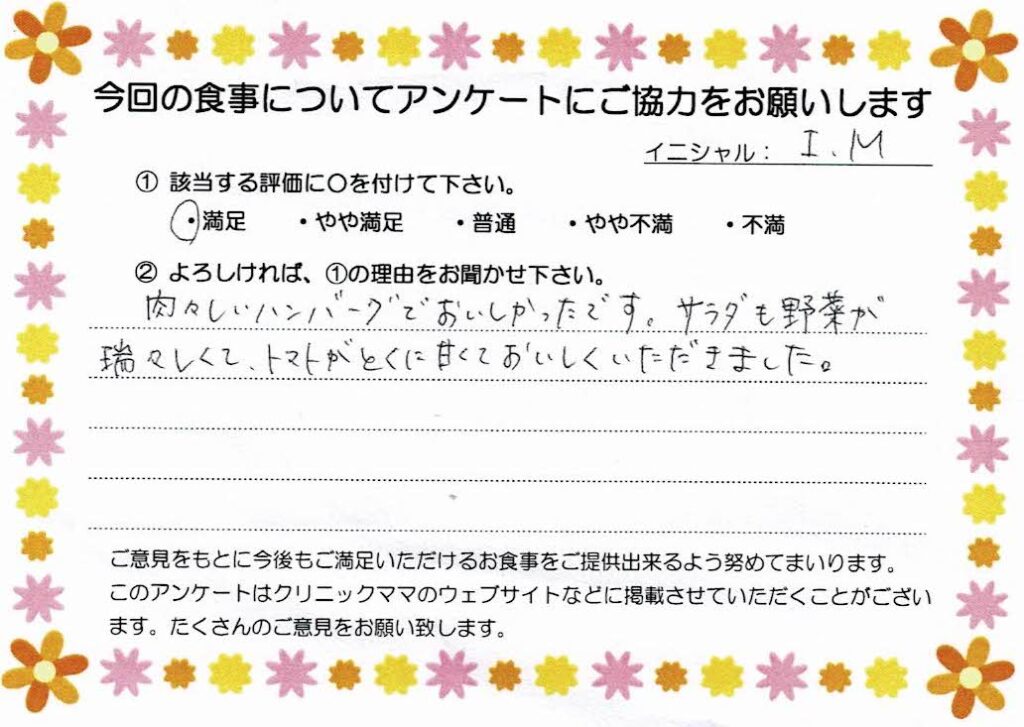 今回の食事についてアンケートにご協力をお願いします
イニシャル： I.M
① 該当する評価に〇を付けて下さい。
・満足 ・やや満足 ・普通 ・やや不満 ・不満
② よろしければ、①の理由をお聞かせ下さい。
肉々しいハンバーグでおいしかったです。サラダも野菜が
瑞々しくて、トマトがとくに甘くておいしくいただきました。
ご意見をもとに今後もご満足いただけるお食事をご提供出来るよう努めてまいります。
このアンケートはクリニックママのウェブサイトなどに掲載させていただくことがござい
ます。たくさんのご意見をお願い致します。